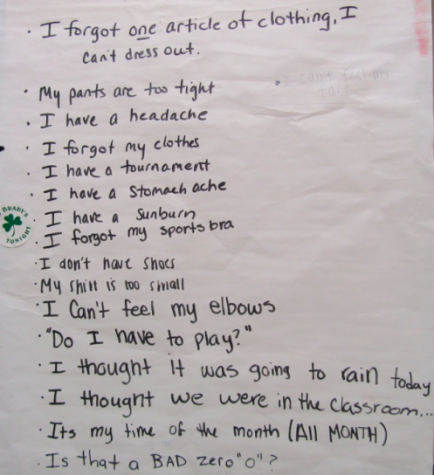 · I forgot one article of clothing, I
can't dress out.
· My pants are too tight
· I have a headache
· I forgot my clothes
· I have a tournament
· I have a Stomach ache
· I have a Sunburn
· I forgot my sports bra
· I don't have shoes
· My shirt is too small
· I Can't feel my elbows
· "Do I have to play?"
· I thought it was going to rain today
· I thought we were in the classroom...
· Its my time of the month (All MONTH)
· Is that a BAD zero "0"?
TONIGHT